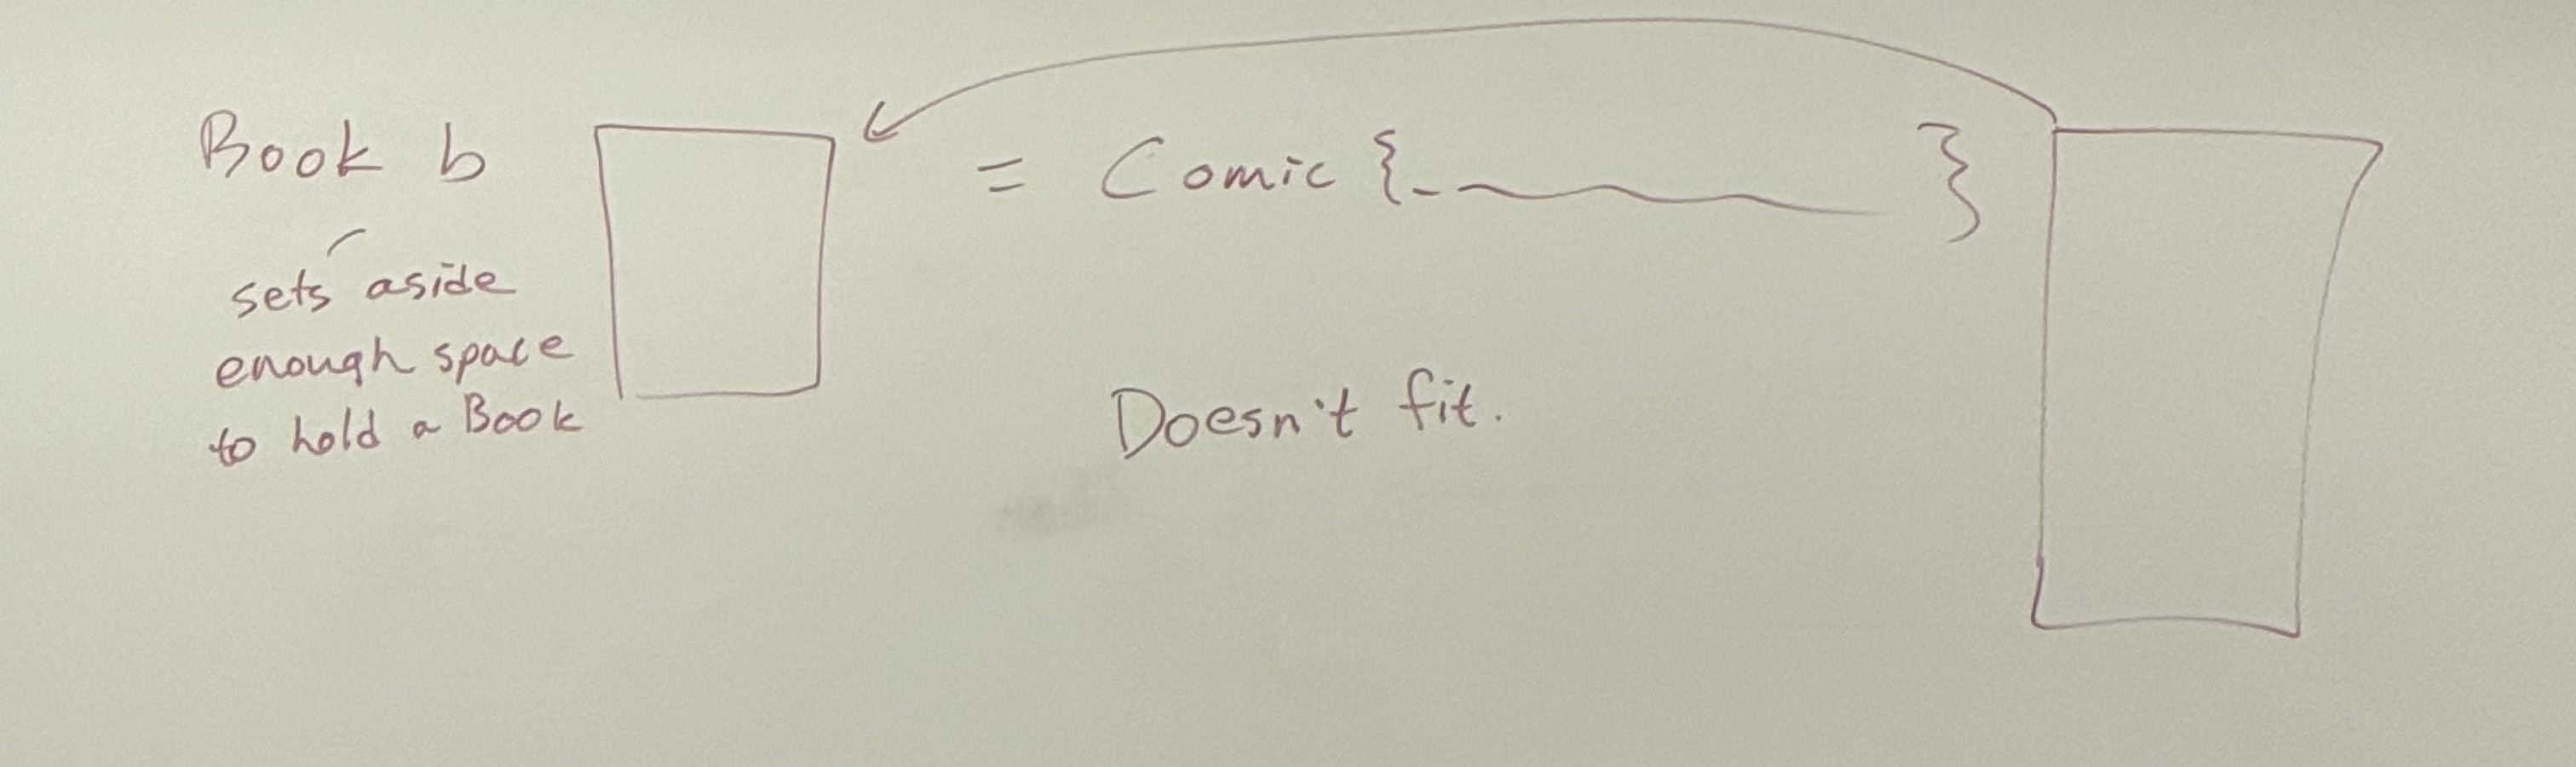 Book b = Comic {
}
sets aside
enough space
to hold a Book
Doesn't fit.